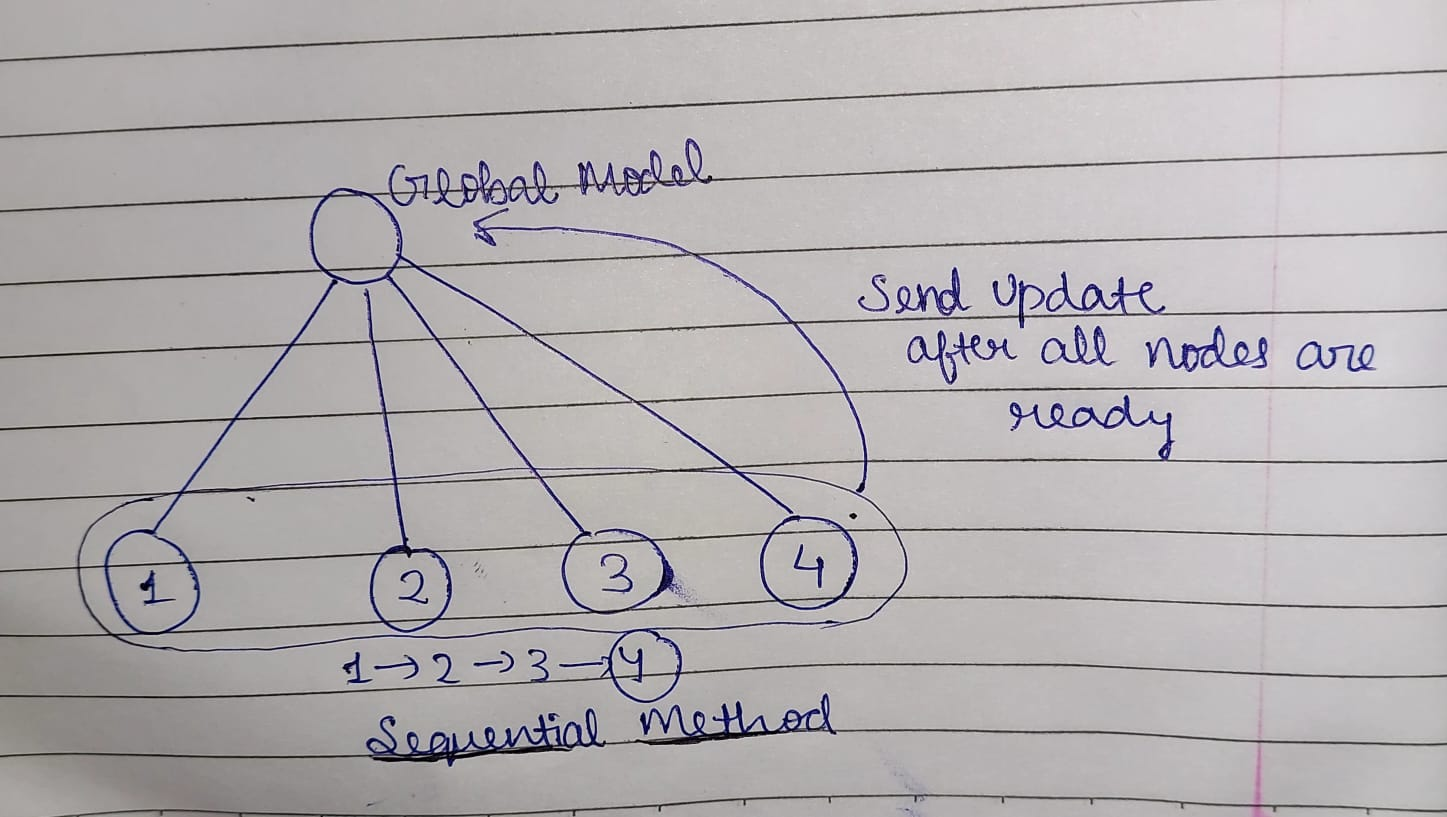 Global Model
Send Update
after all nodes are
ready
1 2 3 4
1→2→3→4
Sequential Method